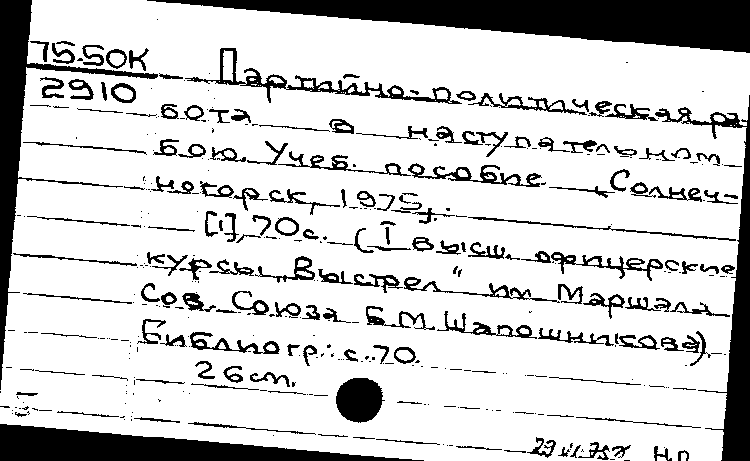 75-50К
2910
Партийно-политическая ра-
бота в наступательном
бою. Учеб. пособие. Солнеч-
ногорск, 1975.
[1], 70с. (I высш. офицерские
курсы „Выстрел“ им. Маршала
Сов. Союза Б.М. Шапошникова).
Библиогр.: с. 70.
26cm.
Н.П.